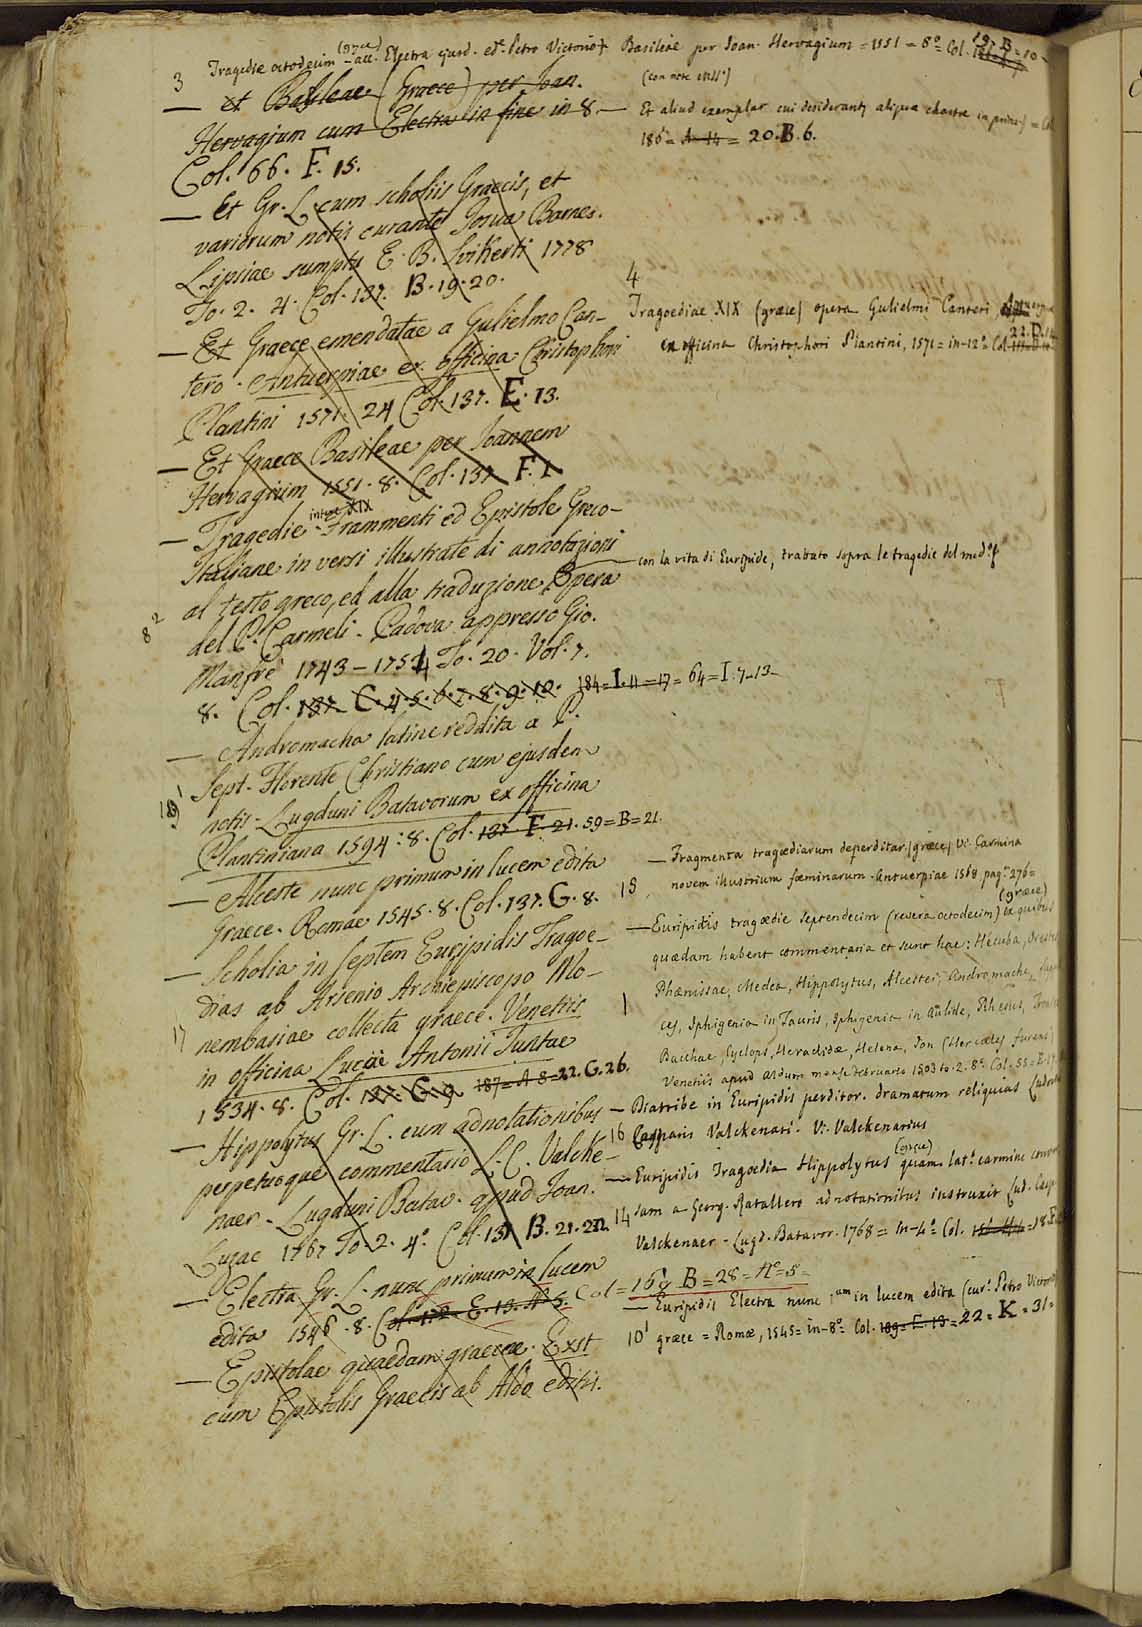 (græce)
Tragediæ octodecim acc. Electra ejusd. ed. Petro Victorio Basileæ per Joan. Hervagium = 1551 = 8º Col.
197. B. 10
3
— et Basileae (Graece) per Joan.
Hervagium cum Electra in fine in 8. —
Col. 66. F. 15.
— Et Gr. L. cum scholiis Graecis, et
variorum notis curante Josua Barnes.
Lipsiae sumptu E. B. Svikerti 1778
To. 2. 4. Col. 137. B. 19. 20.
— Et Graece emendatae a Gulielmo Can-
tero. Antuerpiae ex officina Christophori
Plantini 1571. 24 Col. 137. E. 13.
— Et Graece Basileae per Joannem
Hervagium 1551. 8. Col. 137 F. 1
intere XIX
— Tragedie Frammenti ed Epistole Greco-
Italiane in versi illustrate di annotazioni
al testo greco, ed alla traduzione Opera
8²
del P. Carmeli. Padova appresso Gio.
Manfrè 1743 – 1754 To. 20. Vol. 7.
8. Col. 137. C. 4. 5. 6. 7. 8. 9. 10. 184 = I. 11 = 17 = 64 = I. 7-13-
— Andromacha latine reddita a P.
Sept. Florente Christiano cum ejusdem
notis. Lugduni Batavorum ex officina
Plantiniana 1594 : 8. Col. 137 F. 21. 59 = B = 21.
— Alceste nunc primum in lucem edita
Graece. Romae 1545. 8. Col. 137. G. 8.
— Scholia in septem Euripidis Tragoe-
dias ab Arsenio Archiepiscopo Mo-
17
nembasiae collecta graece. Venetiis
in officina Lucae Antonii Juntae
1534. 8. Col. 187 = A 8 = 22. G. 26.
— Hippolytus Gr. L. cum adnotationibus
perpetuoque commentario L. C. Valcke-
naer. Lugduni Batav. apud Joan.
Luzac 1767 To. 2. 4º. Col. 137 B. 21. 22.
— Electra Gr. L. nunc primum in lucem
edita 1546. 8. Col. 172. E. 13. Nº 5. Col = 169 B = 28 = Nº = 5 =
— Epistolae quaedam graecae. Exst
cum Epistolis Graecis ab Aldo editis.
(con note mss.)
Et aliud exemplar cui desiderant aliqua charta in
186 = A = 14 = 20. B. 6.
4
Tragoediæ XIX (græce) opera Gulielmi Canteri
22. D.
ex officina Christophori Plantini, 1571 = in-12º = Col.
— con la vita di Euripide, trattato sopra le tragedie del med.º
— Fragmenta tragœdiarum deperditar. (græce) Vi. Carmina
15
novem illustrium fœminarum. Antuerpiae 1568 pag. 276 =
(græce)
— Euripidis tragœdie septendecim (revera octodecim) ex quibus
quædam habent commentaria et sunt hæ: Hecuba, Orestes
1
Phœnissae, Medea, Hippolytus, Alcestes, Andromache,
ces, Iphigenia in Tauris, Iphigenia in Aulide, Rhesus,
Bacchae, Cyclops, Heraclidæ, Helena, Jon (Hercules furens)
Venetiis apud Aldum mense Februario 1503 to. 2. 8º. Col. 55 =
— Diatribe in Euripidis perditor. dramatum reliquias
16 Casparis Valckenari. Vi. Valckenarius
(græce)
— Euripidis Tragoedia Hippolytus quam lat. carmine
14 sam a Georg. Ratallero adnotationibus instruxit Lud. Casp.
Valckenaer. Lugd. Batavor. 1768 = in-4º = Col. = 18.
— Euripidis Electra nunc 1.um in lucem edita (cur. Petro Victorio
10¹ græce = Romæ, 1545 = in-8º = Col. 189 = E. 13 = 22 = K = 31 =